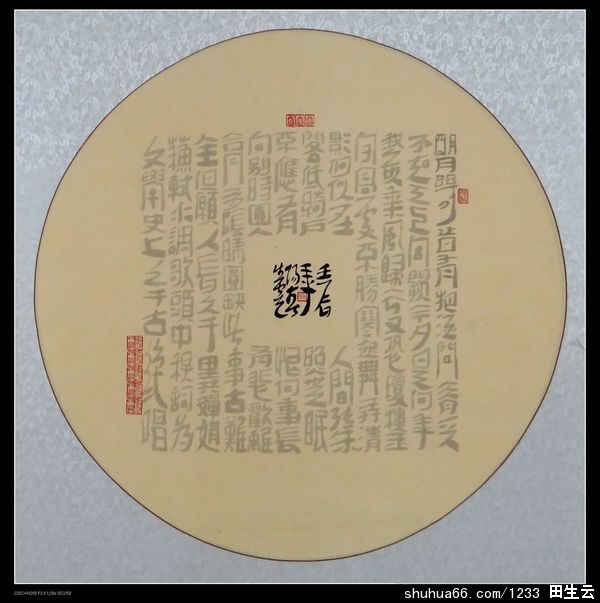 明月幾時有把酒問青天
不知天上宫闕今夕是何年
我欲乘風歸去又恐瓊樓玉
宇高處不勝寒起舞弄清
影何似在人間轉朱
閣低綺户照無眠
不應有恨何事長
向别時圓人有悲歡離
合月有陰晴圓缺此事古難
全但願人長久千里共嬋娟
蘇軾水調歌頭中秋詞為
文學史上之千古絶唱
shuhua66.com/1233 田生云